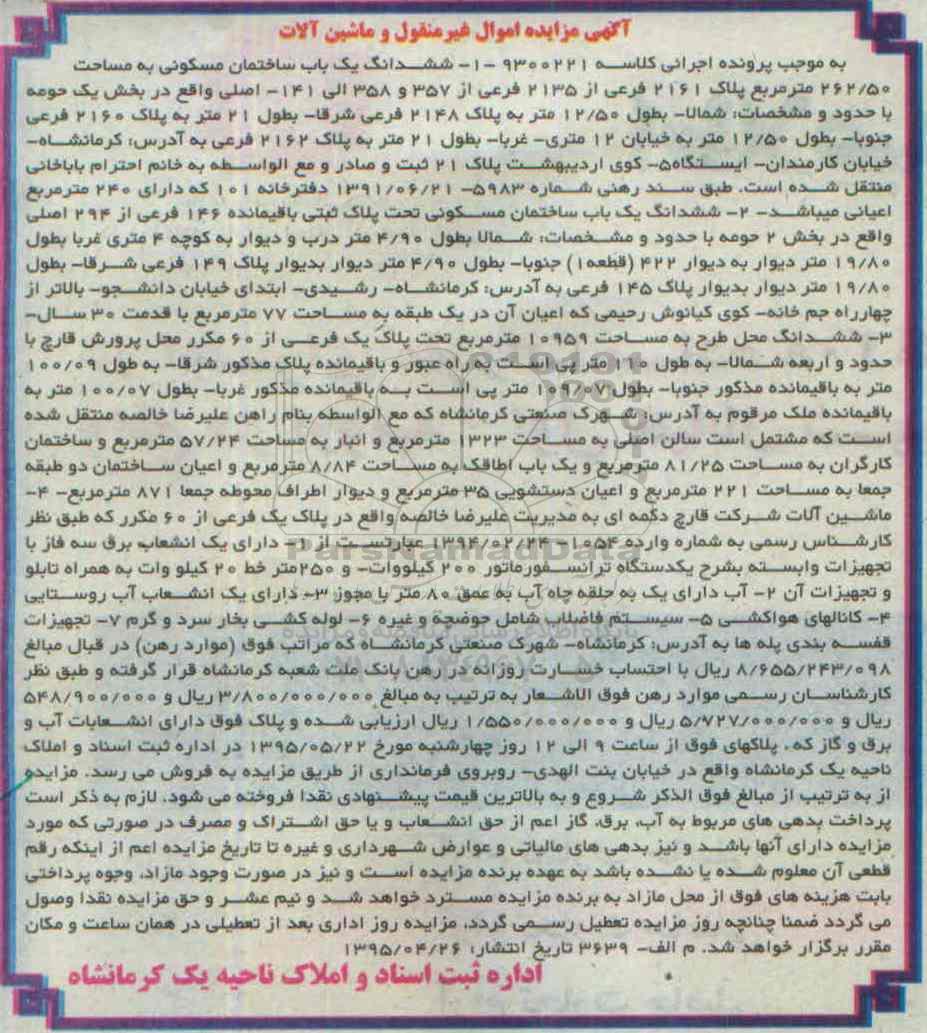 آگهی مزایده اموال غیرمنقول و ماشین آلات
به موجب پرونده اجرائی کلاسه ۹۳۰۰۲۲۱ -۱- ششدانگ یک باب ساختمان مسکونی به مساحت
۲۶۲/۵۰ مترمربع پلاک ۲۱۶۱ فرعی از ۲۱۳۵ فرعی از ۳۵۷ و ۳۵۸ الی ۱۴۱- اصلی واقع در بخش یک حومه
با حدود و مشخصات: شمالا- بطول ۱۲/۵۰ متر به پلاک ۲۱۴۸ فرعی شرقا- بطول ۲۱ متر به پلاک ۲۱۶۰ فرعی
جنوبا- بطول ۱۲/۵۰ متر به خیابان ۱۲ متری- غربا- بطول ۲۱ متر به پلاک ۲۱۶۲ فرعی به آدرس: کرمانشاه-
خیابان کارمندان- ایستگاه۵- کوی اردیبهشت پلاک ۲۱ ثبت و صادر و مع الواسطه به خانم احترام باباخانی
منتقل شده است. طبق سند رهنی شماره ۵۹۸۳- ۱۳۹۱/۰۶/۲۱ دفترخانه ۱۰۱ که دارای ۲۴۰ مترمربع
اعیانی میباشد- ۲- ششدانگ یک باب ساختمان مسکونی تحت پلاک ثبتی باقیمانده ۱۴۶ فرعی از ۲۹۴ اصلی
واقع در بخش ۲ حومه با حدود و مشخصات: شمالا بطول ۴/۹۰ متر درب و دیوار به کوچه ۴ متری غربا بطول
۱۹/۸۰ متر دیوار به دیوار ۴۲۲ (قطعه۱) جنوبا- بطول ۴/۹۰ متر دیوار بدیوار پلاک ۱۴۹ فرعی شرقا- بطول
۱۹/۸۰ متر دیوار بدیوار پلاک ۱۴۵ فرعی به آدرس: کرمانشاه- رشیدی- ابتدای خیابان دانشجو- بالاتر از
چهارراه جم خانه- کوی کیانوش رحیمی که اعیان آن در یک طبقه به مساحت ۷۷ مترمربع با قدمت ۳۰ سال-
۳- ششدانگ محل طرح به مساحت ۱۰۹۵۹ مترمربع تحت پلاک یک فرعی از ۶۰ مکرر محل پرورش قارچ با
حدود و اربعه شمالا- به طول ۱۱۰ متر پی است به راه عبور و باقیمانده پلاک مذکور شرقا- به طول ۱۰۰/۰۹
متر به باقیمانده مذکور جنوبا- بطول ۱۰۹/۰۷ متر پی است به باقیمانده مذکور غربا- بطول ۱۰۰/۰۷ متر به
باقیمانده ملک مرقوم به آدرس: شهرک صنعتی کرمانشاه که مع الواسطه بنام راهن علیرضا خالصه منتقل شده
است که مشتمل است سالن اصلی به مساحت ۱۳۲۳ مترمربع و انبار به مساحت ۵۷/۲۴ مترمربع و ساختمان
کارگران به مساحت ۸۱/۲۵ مترمربع و یک باب اطاقک به مساحت ۸/۸۴ مترمربع و اعیان ساختمان دو طبقه
جمعا به مساحت ۲۲۱ مترمربع و اعیان دستشویی ۳۵ مترمربع و دیوار اطراف محوطه جمعا ۸۷۱ مترمربع- ۴-
ماشین آلات شرکت قارچ دکمه ای به مدیریت علیرضا خالصه واقع در پلاک یک فرعی از ۶۰ مکرر که طبق نظر
کارشناس رسمی به شماره وارده ۱۰۵۴- ۱۳۹۴/۰۲/۲۴ عبارتست از ۱- دارای یک انشعاب برق سه فاز با
تجهیزات وابسته بشرح یکدستگاه ترانسفورماتور ۲۰۰ کیلووات- و ۲۵۰متر خط ۲۰ کیلو وات به همراه تابلو
و تجهیزات آن ۲- آب دارای یک به حلقه چاه آب به عمق ۸۰ متر با مجوز ۳- دارای یک انشعاب آب روستایی
۴- کانالهای هواکشی ۵- سیستم فاضلاب شامل حوضچه و غیره ۶- لوله کشی بخار سرد و گرم ۷- تجهیزات
قفسه بندی پله ها به آدرس: کرمانشاه- شهرک صنعتی کرمانشاه که مراتب فوق (موارد رهن) در قبال مبالغ
۸/۶۵۵/۲۴۳/۰۹۸ ریال با احتساب خسارت روزانه در رهن بانک ملت شعبه کرمانشاه قرار گرفته و طبق نظر
کارشناسان رسمی موارد رهن فوق الاشعار به ترتیب به مبالغ ۳/۸۰۰/۰۰۰/۰۰۰ ریال و ۵۴۸/۹۰۰/۰۰۰
ریال و ۵/۷۲۷/۰۰۰/۰۰۰ ریال و ۱/۵۵۰/۰۰۰/۰۰۰ ریال ارزیابی شده و پلاک فوق دارای انشعابات آب و
برق و گاز که . پلاکهای فوق از ساعت ۹ الی ۱۲ روز چهارشنبه مورخ ۱۳۹۵/۰۵/۲۲ در اداره ثبت اسناد و املاک
ناحیه یک کرمانشاه واقع در خیابان بنت الهدی- روبروی فرمانداری از طریق مزایده به فروش می رسد. مزایده
از به ترتیب از مبالغ فوق الذکر شروع و به بالاترین قیمت پیشنهادی نقدا فروخته می شود. لازم به ذکر است
پرداخت بدهی های مربوط به آب، برق، گاز اعم از حق انشعاب و یا حق اشتراک و مصرف در صورتی که مورد
مزایده دارای آنها باشد و نیز بدهی های مالیاتی و عوارض شهرداری و غیره تا تاریخ مزایده اعم از اینکه رقم
قطعی آن معلوم شده یا نشده باشد به عهده برنده مزایده است و نیز در صورت وجود مازاد، وجوه پرداختی
بابت هزینه های فوق از محل مازاد به برنده مزایده مسترد خواهد شد و نیم عشر و حق مزایده نقدا وصول
می گردد ضمنا چنانچه روز مزایده تعطیل رسمی گردد، مزایده روز اداری بعد از تعطیلی در همان ساعت و مکان
مقرر برگزار خواهد شد. م الف- ۳۶۳۹ تاریخ انتشار: ۱۳۹۵/۰۴/۲۶
اداره ثبت اسناد و املاک ناحیه یک کرمانشاه
ParsNamadData